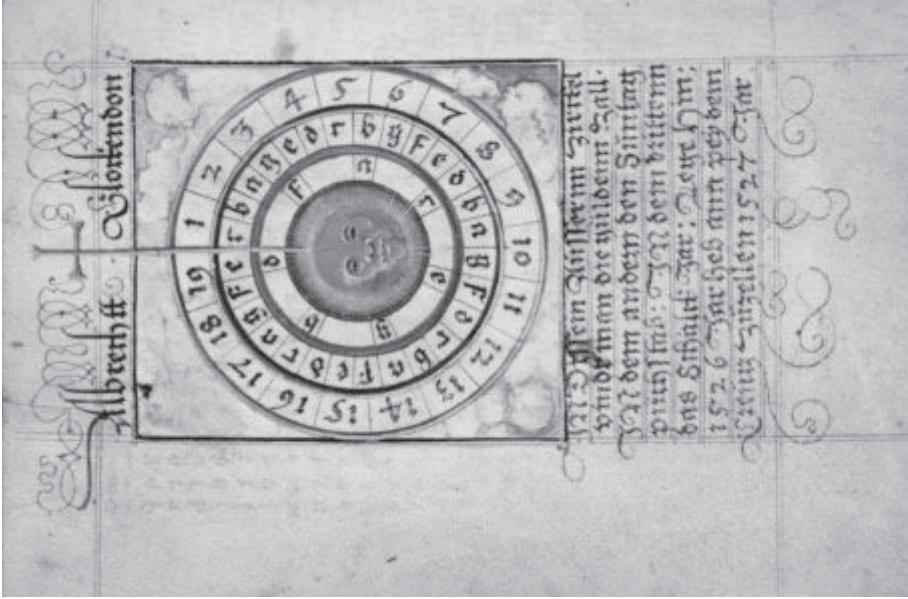 Albrechtt · Glockendon
1 2 3 4 5 6 7 8 9 10 11 12 13 14 15 16 17 18 19
F e c b a g e d c b g F e d b a g F d c b a F e d c a g
d f a c e g b
In Disem Aussernn Zirckel
vindt man die guldenn Zall.
In dem andern den Sunntag
puchstab: In dem drittem
das Schaltt Jar:
1526 Jar heb ann pey dem
Creutz zuzellen 1527 Jar